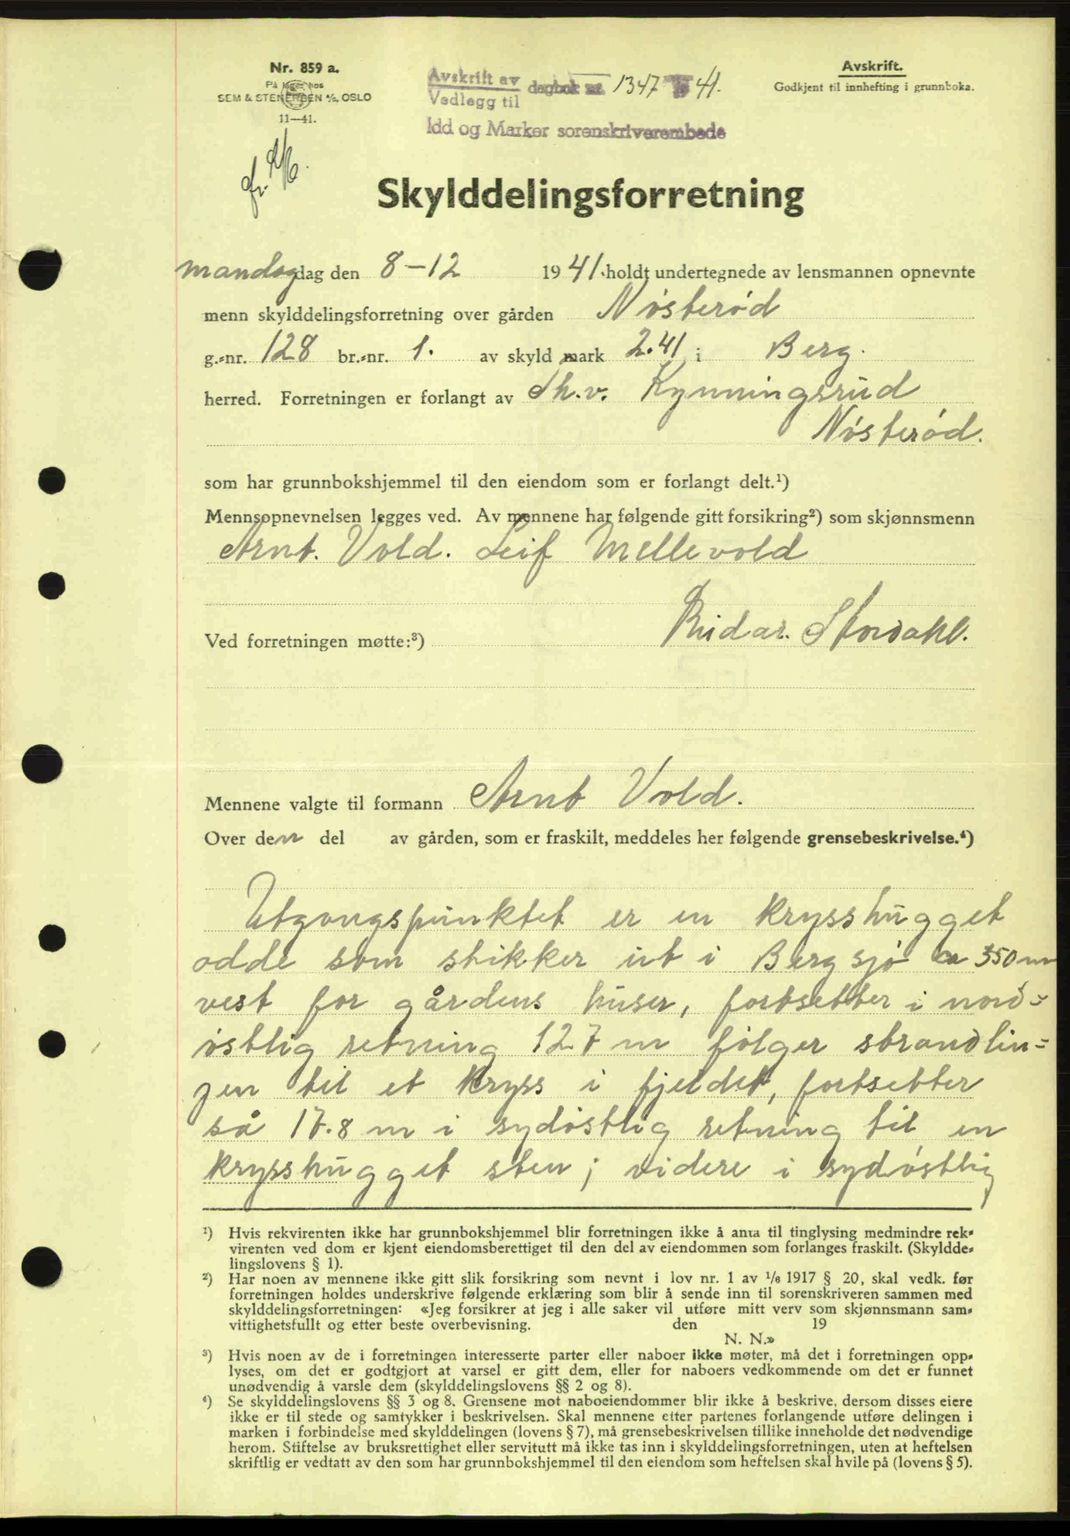 Nr. 859 a.
På lager hos
SEM & STENERSEN A/S, OSLO
11—41.
Avskrift av
Vedlegg til
dagbok nr. 1347 19 41.
Idd og Marker sorenskriverembede
Avskrift.
Godkjent til innhefting i grunnboka.
Skylddelingsforretning
mandag dag den 8-12 1941. holdt undertegnede av lensmannen opnevnte
menn skylddelingsforretning over gården Nøsterød
g.-nr. 128 br.-nr. 1. av skyld mark 2.41 i Berg.
herred. Forretningen er forlangt av Th. v. Kynningsrud
Nøsterød.
som har grunnbokshjemmel til den eiendom som er forlangt delt.¹)
Mennsopnevnelsen legges ved. Av mennene har følgende gitt forsikring²) som skjønnsmenn
Arnt. Vold. Leif Mellevold
Reidar. Stordahl.
Ved forretningen møtte:³)
Mennene valgte til formann Arnt Vold.
Over den del av gården, som er fraskilt, meddeles her følgende grensebeskrivelse.⁴)
Utgangspunktet er en krysshugget
odde som stikker ut i Bergsjø ca 350 m
vest for gårdens huser, fortsetter i nord-
østlig retning 127 m følger strandlin-
jen til et kryss i fjeldet, fortsetter
så 17.8 m i sydøstlig retning til en
krysshugget sten; videre i sydøstlig
¹) Hvis rekvirenten ikke har grunnbokshjemmel blir forretningen ikke å anta til tinglysing medmindre rek-
virenten ved dom er kjent eiendomsberettiget til den del av eiendommen som forlanges fraskilt. (Skyldde-
lingslovens § 1).
²) Har noen av mennene ikke gitt slik forsikring som nevnt i lov nr. 1 av 1/6 1917 § 20, skal vedk. før
forretningen holdes underskrive følgende erklæring som blir å sende inn til sorenskriveren sammen med
skylddelingsforretningen: «Jeg forsikrer at jeg i alle saker vil utføre mitt verv som skjønnsmann sam-
vittighetsfullt og etter beste overbevisning. den 19
N. N.»
³) Hvis noen av de i forretningen interesserte parter eller naboer ikke møter, må det i forretningen opp-
lyses, om det er godtgjort at varsel er gitt dem, eller for naboers vedkommende om det er funnet
unødvendig å varsle dem (skylddelingslovens §§ 2 og 8).
⁴) Se skylddelingslovens §§ 3 og 8. Grensene mot naboeiendommer blir ikke å beskrive, dersom disses eiere
ikke er til stede og samtykker i beskrivelsen. Skal mennene etter partenes forlangende utføre delingen i
marken i forbindelse med skylddelingen (lovens § 7), må grensebeskrivelsen tillike inneholde det nødvendige
herom. Stiftelse av bruksrettighet eller servitutt må ikke tas inn i skylddelingsforretningen, uten at heftelsen
skriftlig er vedtatt av den som har grunnbokshjemmel til den eiendom som heftelsen skal hvile på (lovens § 5).